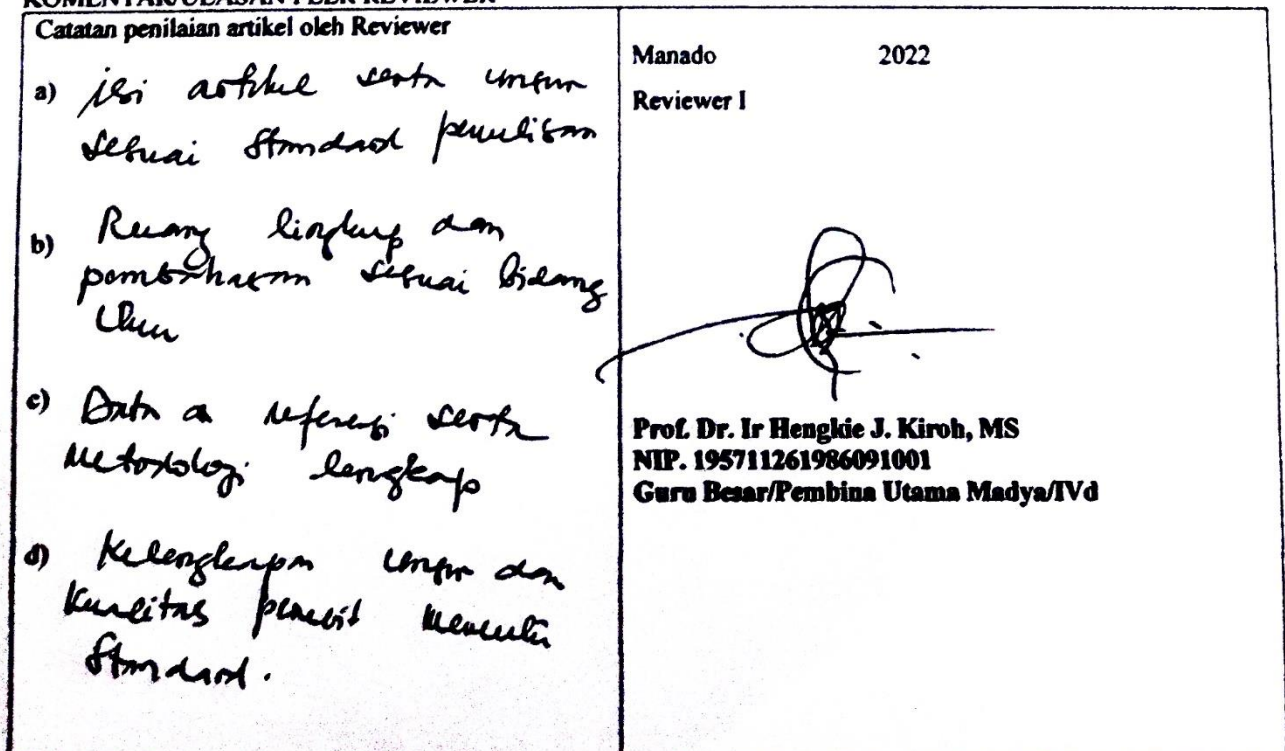 KOMENTAR/ULASAN PEER REVIEWER
Catatan penilaian artikel oleh Reviewer
a) isi artikel serta unsur
sesuai Standard penulisan
b) Ruang lingkup dan
pembahasan sesuai bidang
Ilmu
c) Data a referensi serta
Metodologi lengkap
d) Kelengkapan unsur dan
Kualitas penerbit
Standard.
Manado 2022
Reviewer I
Prof. Dr. Ir Hengkie J. Kiroh, MS
NIP. 195711261986091001
Guru Besar/Pembina Utama Madya/IVd